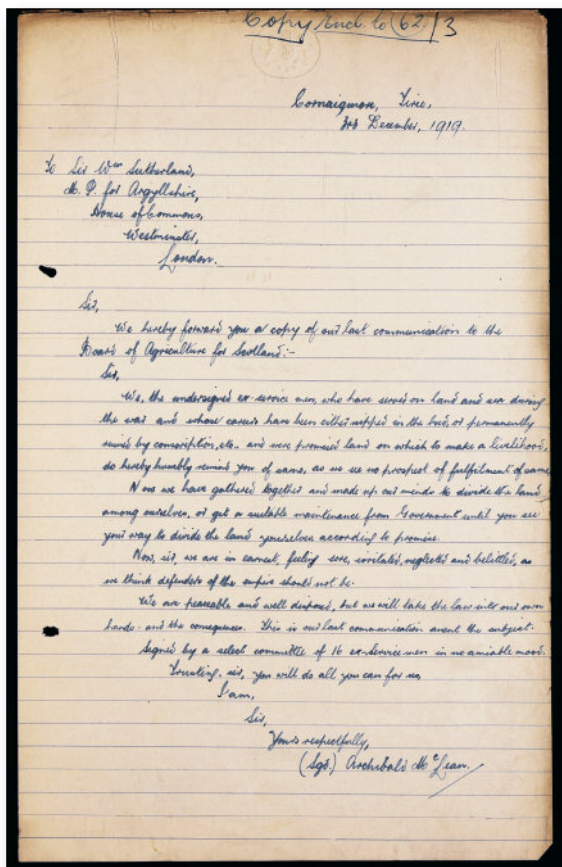 Copy Encl. to (62)/3
Cornaigmore, Tiree,
3rd December, 1919.
To Sir Wm Sutherland,
M. P. for Argyllshire,
House of Commons,
Westminster,
London.
Sir,
We hereby forward you a copy of our last communication to the
Board of Agriculture for Scotland:-
Sir,
We, the undersigned ex-service men, who have served on land and sea during
the war and whose careers have been either nipped in the bud, or permanently
ruined by conscription, etc. and were promised land on which to make a livelihood,
do hereby humbly remind you of same, as we see no prospect of fulfilment of same.
Now we have gathered together and made up our minds to divide the land
among ourselves, or get a suitable maintenance from Government until you see
your way to divide the land yourselves according to promise.
Now, sir, we are in earnest, feeling sore, irritated, neglected and belittled, as
we think defenders of the empire should not be.
We are peaceable and well disposed, but we will take the law into our own
hands - and the consequences. This is our last communication anent the subject.
Signed by a select committee of 16 ex-Service men in no amiable mood.
Trusting, sir, you will do all you can for us,
I am,
Sir,
Yours respectfully,
(Sgd.) Archibald McLean.